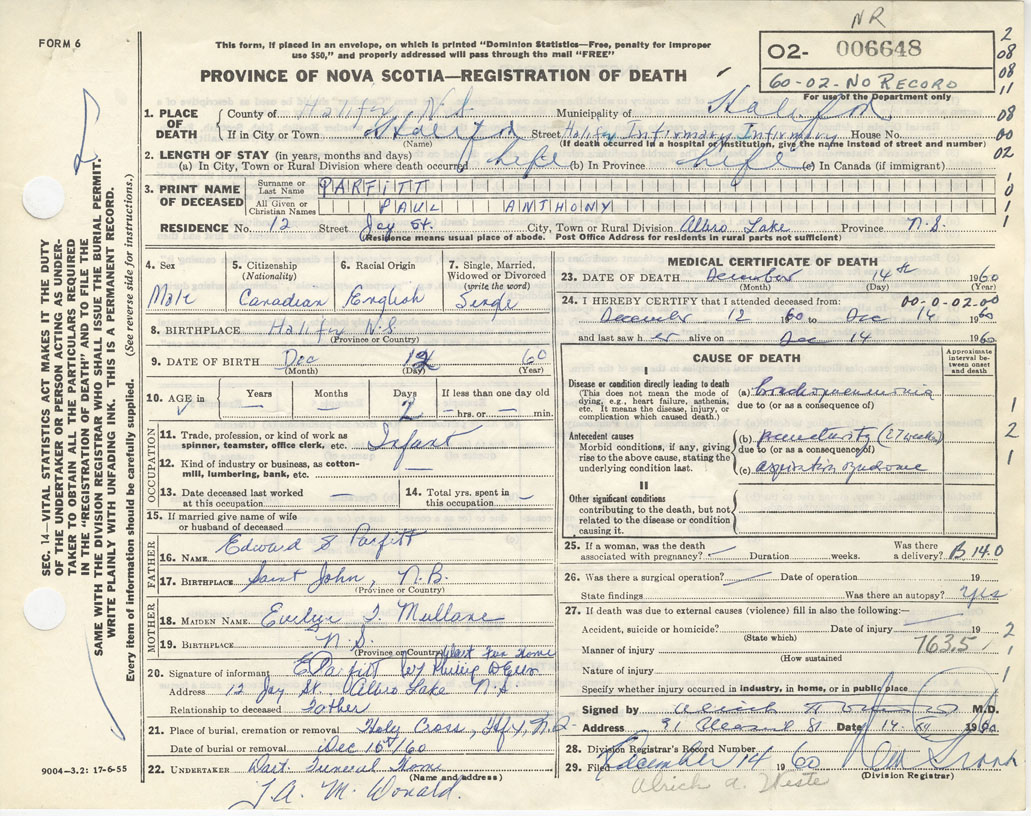 NR
FORM 6
This form, if placed in an envelope, on which is printed "Dominion Statistics—Free, penalty for improper
use $50," and properly addressed will pass through the mail "FREE"
PROVINCE OF NOVA SCOTIA—REGISTRATION OF DEATH
02- 006648
60-02-NO RECORD
For use of the Department only
2
08
08
11
08
00
02
1. PLACE OF DEATH
County of Halifax N.S. Municipality of Halifax
If in City or Town Street Halifax Infirmary Infirmary House No.
(Name) (If death occurred in a hospital or institution, give the name instead of street and number)
2. LENGTH OF STAY (in years, months and days)
(a) In City, Town or Rural Division where death occurred life (b) In Province life (c) In Canada (if immigrant)
3. PRINT NAME OF DECEASED
Surname or Last Name PARFITT
All Given or Christian Names PAUL ANTHONY
1
0
1
1
RESIDENCE No. 12 Street Jay St. City, Town or Rural Division Albro Lake Province N.S.
(Residence means usual place of abode. Post Office Address for residents in rural parts not sufficient)
4. Sex
Male
5. Citizenship (Nationality)
Canadian
6. Racial Origin
English
7. Single, Married, Widowed or Divorced (write the word)
Single
8. BIRTHPLACE Halifax N.S
(Province or Country)
9. DATE OF BIRTH Dec 12 60
(Month) (Day) (Year)
10. AGE in
Years Months Days If less than one day
— — 2 — hrs. or — min.
OCCUPATION
11. Trade, profession, or kind of work as spinner, teamster, office clerk, etc. Infant
12. Kind of industry or business, as cotton-mill, lumbering, bank, etc. —
13. Date deceased last worked at this occupation —
14. Total yrs. spent in this occupation —
15. If married give name of wife or husband of deceased
FATHER
16. NAME Edward S Parfitt
17. BIRTHPLACE Saint John, N.B.
(Province or Country)
MOTHER
18. MAIDEN NAME Evelyn J. Mullane
19. BIRTHPLACE N.S.
(Province or Country) Dart Fun Home
20. Signature of informant E Parfitt by
Address 12 Jay St. Albro Lake N.S
Relationship to deceased Father
21. Place of burial, cremation or removal Holy Cross, Hfx, N.S
Date of burial or removal Dec 15th/60
22. UNDERTAKER Dart. Funeral Home
(Name and address)
9004-3.2: 17-6-55
MEDICAL CERTIFICATE OF DEATH
23. DATE OF DEATH December 14th 1960
(Month) (Day) (Year)
24. I HEREBY CERTIFY that I attended deceased from: 00-0-02-00
December 12 1960 to Dec 14 1960
and last saw h er alive on Dec 14 1960
CAUSE OF DEATH
Approximate interval between onset and death
I
Disease or condition directly leading to death
(This does not mean the mode of dying, e.g., heart failure, asthenia, etc. It means the disease, injury, or complication which caused death.)
(a) bronchopneumonia
due to (or as a consequence of)
Antecedent causes
Morbid conditions, if any, giving rise to the above cause, stating the underlying condition last.
(b) prematurity (27 weeks)
due to (or as a consequence of)
(c) aspiration syndrome
1
2
1
II
Other significant conditions
contributing to the death, but not related to the disease or condition causing it.
25. If a woman, was the death associated with pregnancy? — Duration weeks. Was there a delivery? B 14.0
26. Was there a surgical operation? — Date of operation 19
State findings Was there an autopsy? yes
27. If death was due to external causes (violence) fill in also the following:—
Accident, suicide or homicide? Date of injury 19
(State which)
Manner of injury 763.5
(How sustained)
2
1
Nature of injury
1
Specify whether injury occurred in industry, in home, or in public place
Signed by M.D.
Address St Date 14 1960
28. Division Registrar's Record Number
29. Filed December 14 1960
(Division Registrar)
SEC. 14—VITAL STATISTICS ACT MAKES IT THE DUTY
OF THE UNDERTAKER OR PERSON ACTING AS UNDER-
TAKER TO OBTAIN ALL THE PARTICULARS REQUIRED
IN THE "REGISTRATION OF DEATH" AND TO FILE THE
SAME WITH THE DIVISION REGISTRAR WHO SHALL ISSUE THE BURIAL PERMIT.
WRITE PLAINLY WITH UNFADING INK. THIS IS A PERMANENT RECORD.
Every item of information should be carefully supplied. (See reverse side for instructions.)